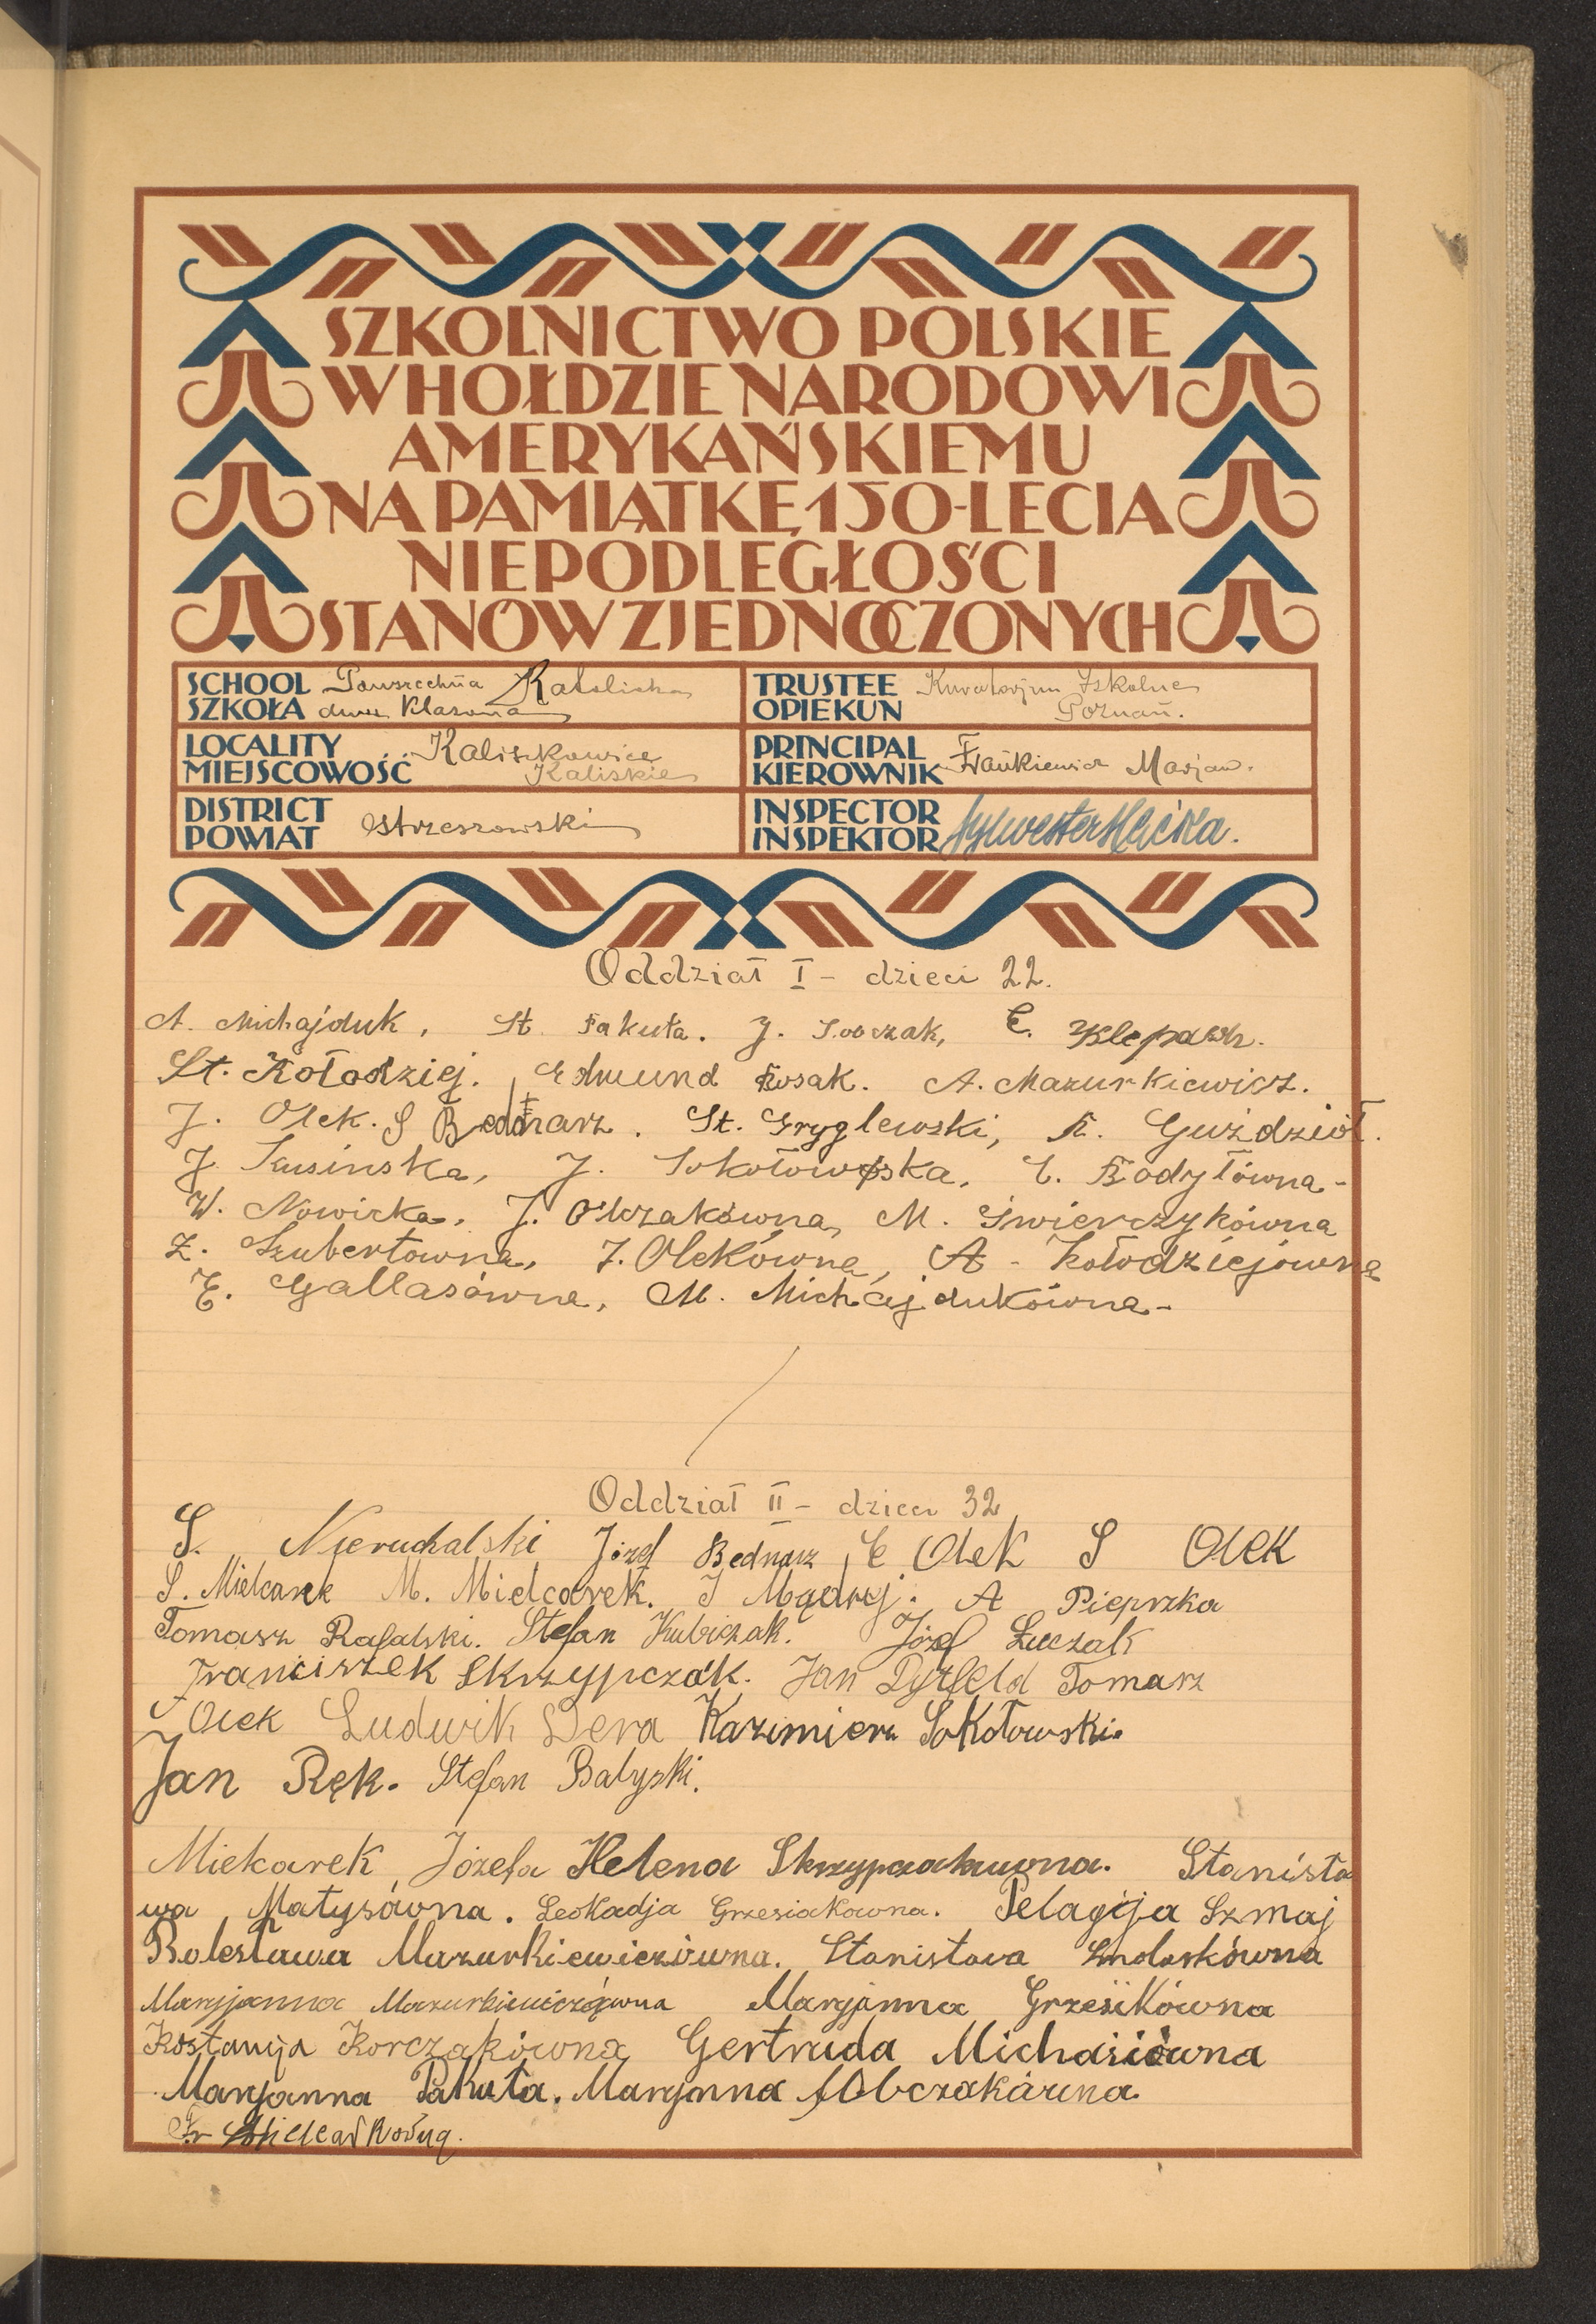 SZKOLNICTWO POLSKIE
W HOŁDZIE NARODOWI
AMERYKAŃSKIEMU
NA PAMIĄTKĘ 150-LECIA
NIEPODLEGŁOŚCI
STANÓW ZJEDNOCZONYCH
SCHOOL Powszechna Katolicka
SZKOŁA dwu klasowa
TRUSTEE Kuratorjum Szkolne
OPIEKUN Poznań.
LOCALITY Kaliszkowice
MIEJSCOWOŚĆ Kaliskie
PRINCIPAL
KIEROWNIK Frankiewicz Marjan.
DISTRICT
POWIAT Ostrzeszowski
INSPECTOR
INSPEKTOR Sylwester
Oddział I - dzieci 22.
A. Michajduk, St. Pakuła. J. E.
St. Kołodziej. Edmund Kosak. A. Mazurkiewicz.
J. Olek. S Bednarz. St. Gryglewski, K. Guździół.
J. Kusinska, J. Sokołowska, C. Kodyłówna-
W. Nowicka. J. Olczakówna, M. Świerczykówna
Z. Szubertówna, J. Olekówna, A - Kołodziejówna
E. Gallasówna, M. Michajdukówna-
Oddział II - dzieci 32
S. Nieruchalski Józef Bednarz, C Olek S Olek
S. Mielcarek M. Mielcarek. J Mądrej. A Pieprzka
Tomasz Rafalski. Stefan Kubiczak. Józef Łuczak
Franciszek Skrzypczak. Jan Dyrfeld Tomasz
Olek Ludwik Dera Kazimierz Sokołowski.
Jan Ręk. Stefan Balyski.
Mielcarek, Józefa Helena Skrzypczakuwna. Stanisła
wa Matysówna. Leokadja Grzesiakowna. Pelagija Szmaj
Bolesława Mazurkiewiczówna. Stanisława Smolarkówna
Maryjanna Mazurkiewiczówna Maryjanna Grzesikówna
Kostancja Korczakówna Gertruda Michasiówna
Maryanna Pakuła. Maryanna Olbczakárwna.
Fr Mielcarkówna.